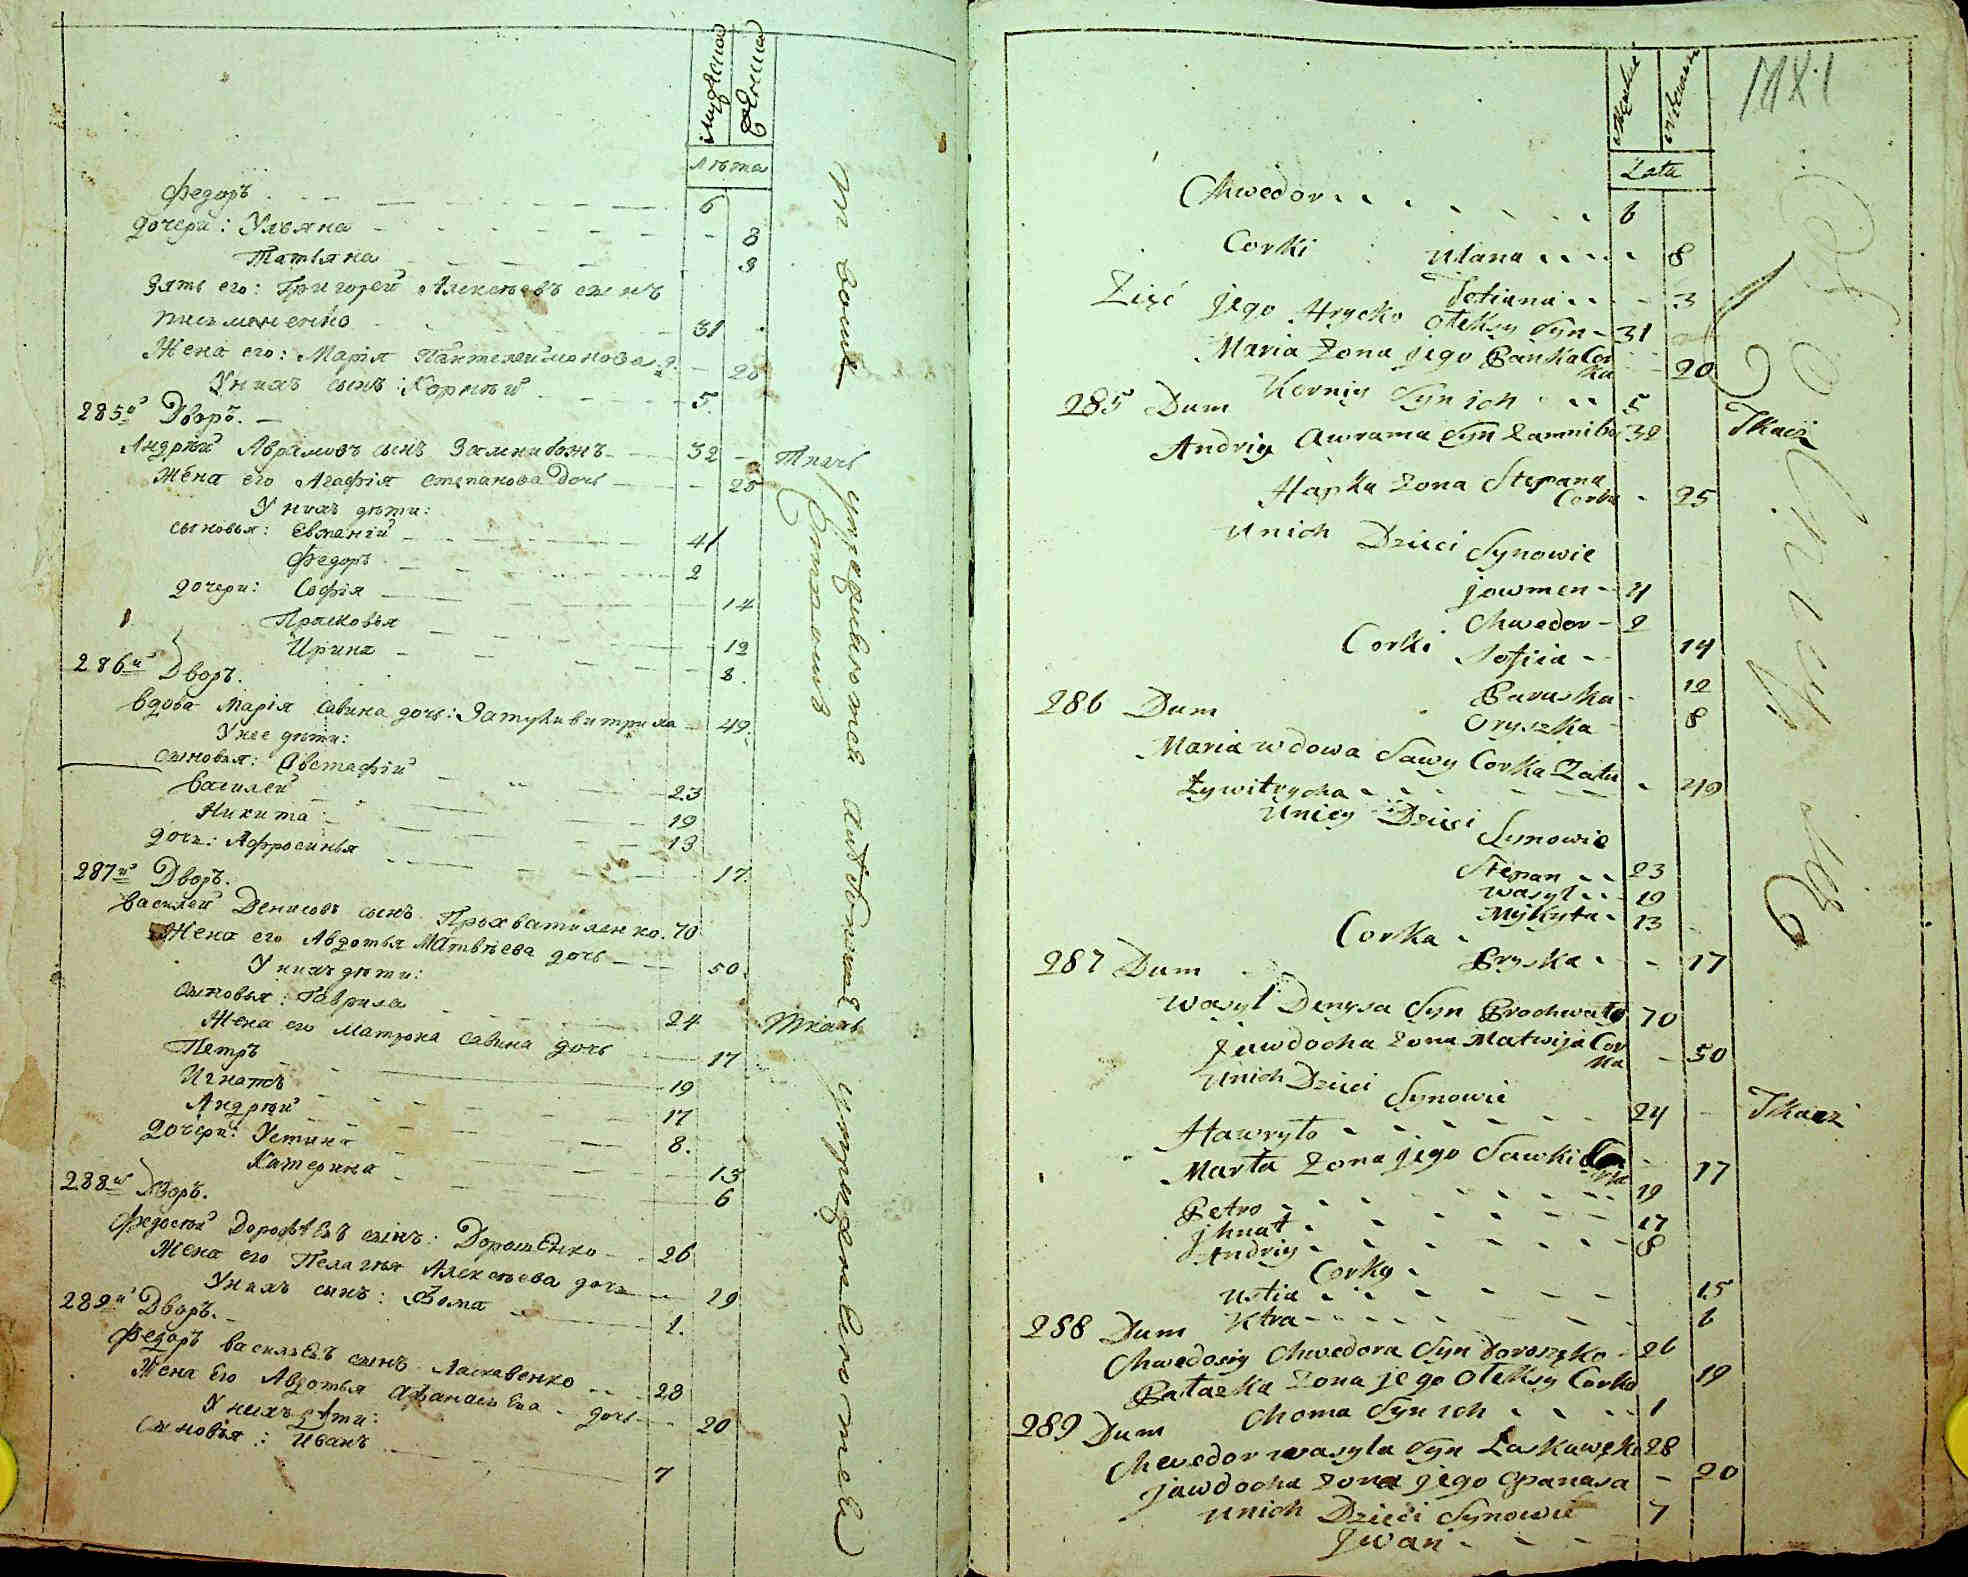 мужеска
женска
лѣта
Федоръ 6
дочери: Ульяна 8
Татьяна 3
Зять его: Григорей Алексѣевъ сынъ
письмененко 31
Жена его: Марія Пантелеймонова д. 20
У нихъ сынъ: Корнѣй 5
285й Дворъ.
Андрѣй Аврамовъ сынъ 32 Ткачь
Жена его Агафія степанова дочь 25
У нихъ дѣти:
сыновья: Евменій 4
Федоръ 2
дочери: Софія 14
Прасковья 12
Ирина 8.
286й Дворъ.
вдова Марія савина дочь: 49.
У нее дѣти:
сыновья:
василей 23
Никита 19
13
дочь: Афросинья 17.
287й Дворъ.
василей Денисовъ сынъ Прохватиленко. 70
Жена его Авдотья Матвѣева дочь 50.
У нихъ дѣти:
сыновья: Гаврила 24 Ткачь
Жена его Матрона савина дочь 17
Петръ 19
Игнатъ 17
Андрѣй 8.
дочери: Устина 15
Катерина 6
288й Дворъ.
Федосѣй Дорофѣевъ сынъ: Дорошенко 26
Жена его Пелагѣя Алексѣева дочь 19
У нихъ сынъ: Фома 1.
289й Дворъ.
Федоръ васильевъ сынъ Ласкавенко 28
Жена его Авдотья Афанасьева дочь 20
У нихъ дѣти:
сыновья: Иванъ 7
Męskie
Lata
Chwedor 6
Corki Ulana 8
Tetiana 3
Zięć jego Hrycko Ołeksy Syn 31
Maria Zona jego Pańka Corka 20
Kerniy Syn ich 5
285 Dum
Andriy Awrama Syn 32 Tkacz
Hapka Zona Stepana Corka 25
U nich Dzieci Synowie
Jawmen 4
Chwedor 2
Corki Sofiia 14
Paraska 12
Oryszka 8
286 Dum
Maria wdowa Sawy Corka Zatu
Zywitrycha 49
U niey Dzieci Synowie
Stepan 23
Wasyl 19
Mykyta 13
Corka Pryska 17
287 Dum
Wasyl Denysa Syn Prochwatyło 70
Jawdocha Zona Matwija Corka 50
U nich Dzieci Synowie
Hawryło 24 Tkacz
Marta Zona jego Sawki Corka 17
Petro 19
Jhnat 17
Andriy 8
Corky
Ustia 15
Ktra 6
288 Dum
Chwedosiy Chwedora Syn Doroszęko 26
Pałazka Zona jego Ołeksy Corka 19
Choma Syn ich 1
289 Dum
Chwedor Wasyla Syn Laskawęko 28
Jawdocha Zona jego Opanasa 20
U nich Dzieci Synowie
Jwan 7